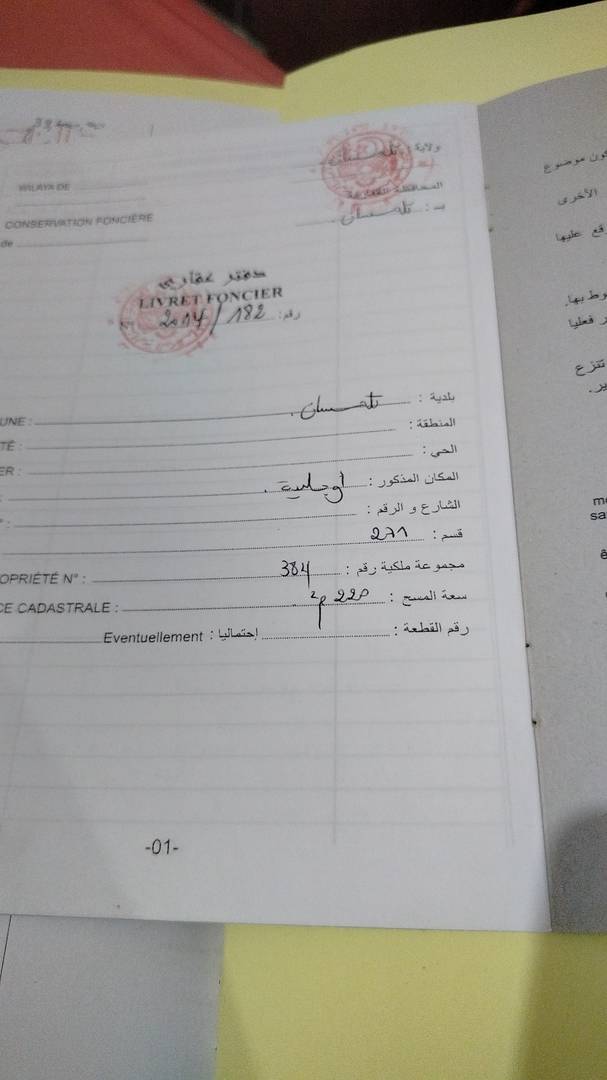 ولاية : تلمسان
WILAYA DE
المحافظة العقارية
CONSERVATION FONCIÈRE
بـ : تلمسان
de
دفتر عقاري
LIVRET FONCIER
رقم : 2014/182
UNE : بلدية : تلمسان
TÉ : المنطقة :
ER : الحي :
: المكان المذكور : أوجليدة
° : الشارع و الرقم :
قسم : 271
OPRIÉTÉ N° : مجموعة ملكية رقم : 384
CE CADASTRALE : سعة المسح : 220 م²
Eventuellement : إحتماليا : رقم القطعة :
-01-
كون موضوع
الأخرى
قع عليها
وط بها.
ر فعليا
تنزع
ير.
m
sa